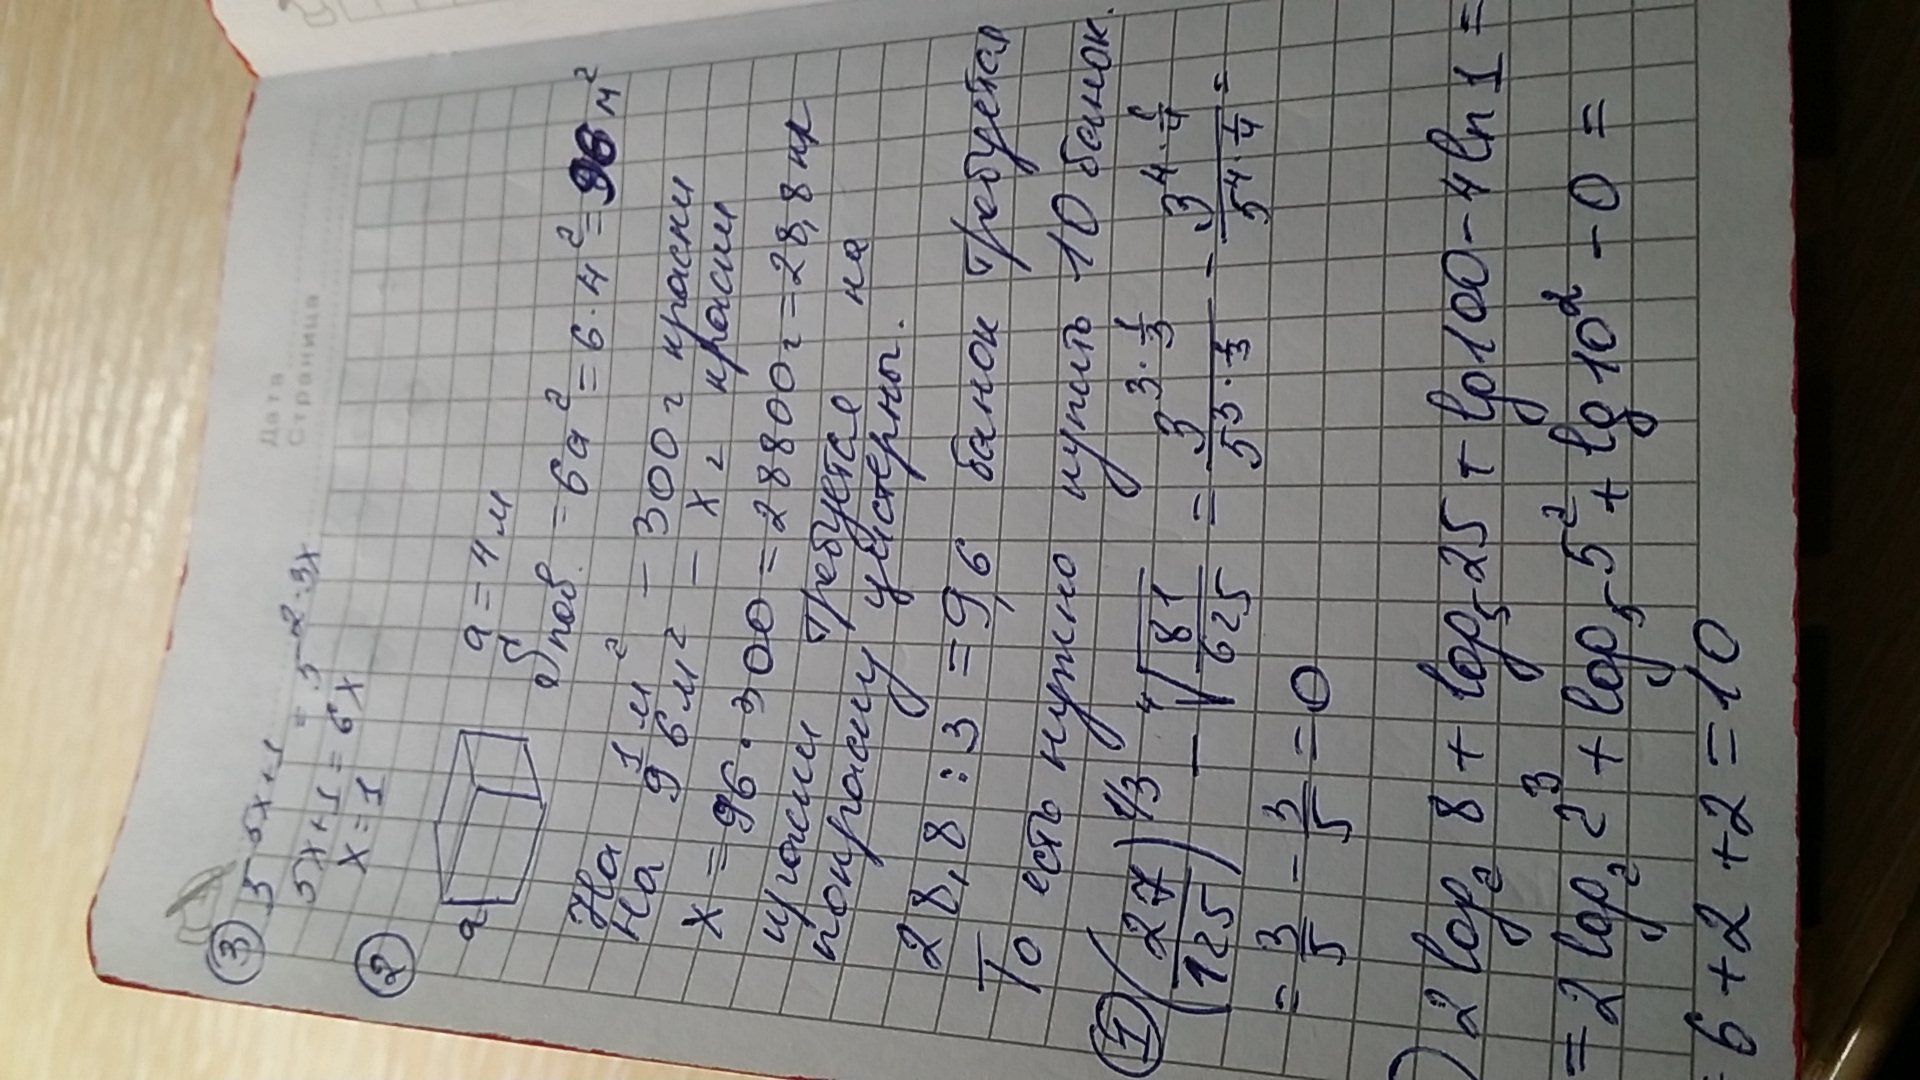 Дата
Страница
③ 5^(5x+1) = 5^(2·3x)
5x+1 = 6x
x=1
②
a
a=4м
Sпов. = 6a² = 6·4² = 96 м²
На 1м² – 300 г краски
На 96м² – x г краски
x = 96·300 = 28800г = 28,8 кг
краски требуется на
покраску цистерны.
28,8 : 3 = 9,6 банок требуется
То есть нужно купить 10 банок.
① (27/125)^(1/3) – ⁴√(81/625) = 3^(3·1/3)/5^(3·1/3) - 3^(4·1/4)/5^(4·1/4) =
= 3/5 - 3/5 = 0
) 2 log₂ 8 + log₅ 25 + lg100 - 4 ln 1 =
= 2 log₂ 2³ + log₅ 5² + lg 10² - 0 =
= 6 + 2 + 2 = 10